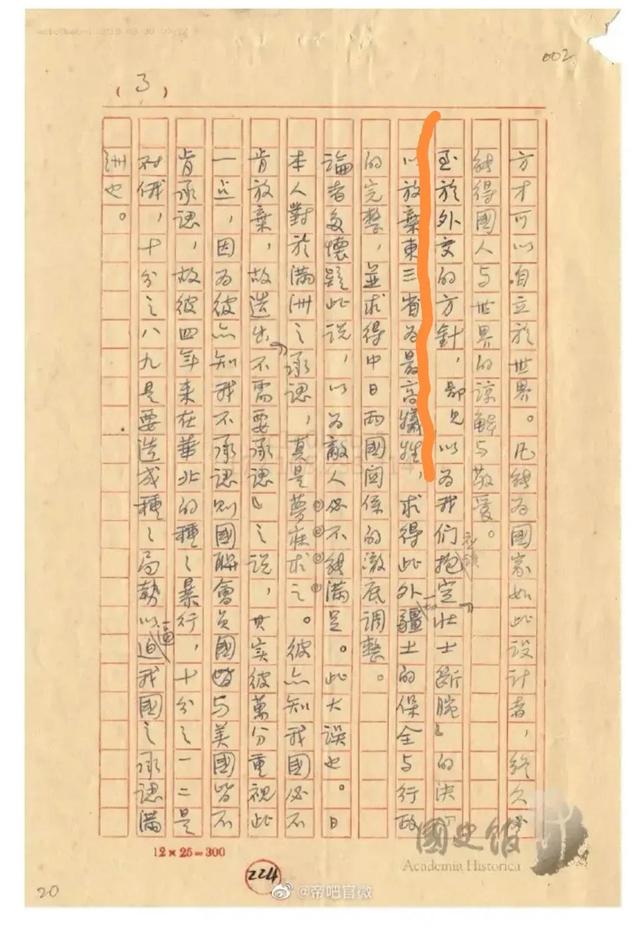 002
(3)
方才可以自立於世界。凡能為國家如此設計者，終久必
能得國人與世界的諒解與敬愛。
至於外交的方針，鄙見以為我們應該抱定「壯士斷腕」的決心，
以放棄東三省為最高犧牲，求得此外疆土的保全與行政
的完整，並求得中日兩國關係的澈底調整。
論者多懷疑此說，以為敵人必不能滿足。此大誤也。日
本人對於滿洲之承認，真是夢寐求之。彼亦知我國必不
肯放棄，故造出「不需要承認」之說，其實彼萬分重視此
一點，因為彼亦知我不承認則國聯會員國皆與美國皆不
肯承認，故彼四年來在華北的種種暴行，十分之一二是
對俄，十分之八九是要造成種種局勢以逼迫我國之承認滿
洲也。
12×25=300
224
20
國史館
Academia Historica
@帝吧官微